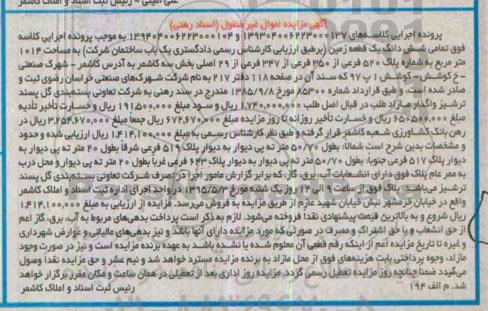 آگهی مزایده اموال غیر منقول (اسناد رهنی)
پرونده اجرایی کلاسه‌های ۱۳۹۳۰۴۰۰۶۲۲۳۰۰۰۱۳۷ و ۱۳۹۴۰۴۰۰۶۲۲۳۰۰۰۱۰۴ به موجب پرونده اجرایی کلاسه
فوق تمامی شش دانگ یک قطعه زمین (برطبق ارزیابی کارشناس رسمی دادگستری یک باب ساختمان شرکت) به مساحت ۱۰۱۴
متر مربع به شماره پلاک ۵۲۰ فرعی از ۳۵۰ فرعی از ۳۴۷ فرعی از ۲۹ اصلی بخش سه کاشمر به آدرس کاشمر - شهرک صنعتی
- خ کوشش - کوشش ۱ پ ۹۷ که سند آن در صفحه ۱۱۸ دفتر ۲۱۷ به نام شرکت شهرکهای صنعتی خراسان رضوی ثبت و
صادر شده است، و طبق قرارداد شماره ۸۵۳۰۰ مورخ ۱۳۸۵/۹/۸ مندرج در سند رهنی به شرکت تعاونی بسته‌بندی گل پسند
ترشیز واگذار و مازاد طلب در قبال اصل طلب ۱,۷۴۰,۰۰۰,۰۰۰ ریال و سود مبلغ ۱۹۱۵۰۰,۰۰۰ ریال و خسارت تأخیر تأدیه
۶۵۰۵۰۰,۰۰۰ ریال و خسارت تأخیر روزانه تا روز مزایده مبلغ ۶۷۲,۶۷۰,۰۰۰ ریال جمعا مبلغ ۳,۲۵۴,۶۷۰,۰۰۰ ریال در
رهن بانک کشاورزی شعبه کاشمر قرار گرفته و طبق نظر کارشناس رسمی به مبلغ ۱,۴۱۴,۱۰۰,۰۰۰ ریال ارزیابی شده و حدود
و مشخصات بدین شرح است شمالا: بطول ۵۰/۷۰ متر پی دیوار به دیوار پلاک ۵۱۹ فرعی شرقا بطول ۲۰ متر پی به دیوار به
دیوار پلاک ۵۱۷ فرعی جنوبا: بطول ۵۰/۷۰ متر پی دیوار به دیوار پلاک ۶۴۳ فرعی غربا بطول ۲۰ متر پی دیوار و محل درب
به ممر عام پلاک فوق دارای انشعابات آب، برق، گاز، که برابر گزارش مامور اجرا در تصرف شرکت تعاونی بسته‌بندی گل پسند
ترشیز می‌باشد. پلاک فوق از ساعت ۹ الی ۱۲ روز یک شنبه مورخ ۱۳۹۵/۵/۳ در واحد اجرای اداره ثبت اسناد و املاک کاشمر
واقع در خیابان خرمشهر نبش خیابان شهید عازم از طریق مزایده به فروش می‌رسد. مزایده از مبلغ ۱,۴۱۴,۱۰۰,۰۰۰
ریال شروع و به بالاترین قیمت پیشنهادی نقدا فروخته می‌شود. لازم به ذکر است پرداخت بدهی‌های مربوط به آب، برق، گاز اعم
از حق انشعاب و یا حق اشتراک و مصرف در صورتی که مورد مزایده دارای آنها باشد و نیز بدهی‌های مالیاتی و عوارض شهرداری
و غیره تا تاریخ مزایده اعم از اینکه رقم قطعی آن معلوم شده یا نشده باشد به عهده برنده مزایده است و نیز در صورت وجود
مازاد، وجوه پرداختی بابت هزینه‌های فوق از محل مازاد به برنده مزایده مسترد خواهد شد و نیم عشر و حق مزایده نقدا وصول
می‌گردد ضمنا چنانچه روز مزایده تعطیل رسمی گردد، مزایده روز اداری بعد از تعطیلی در همان ساعت و مکان مقرر برگزار خواهد
شد. م الف ۱۹۴
رئیس ثبت اسناد و املاک کاشمر